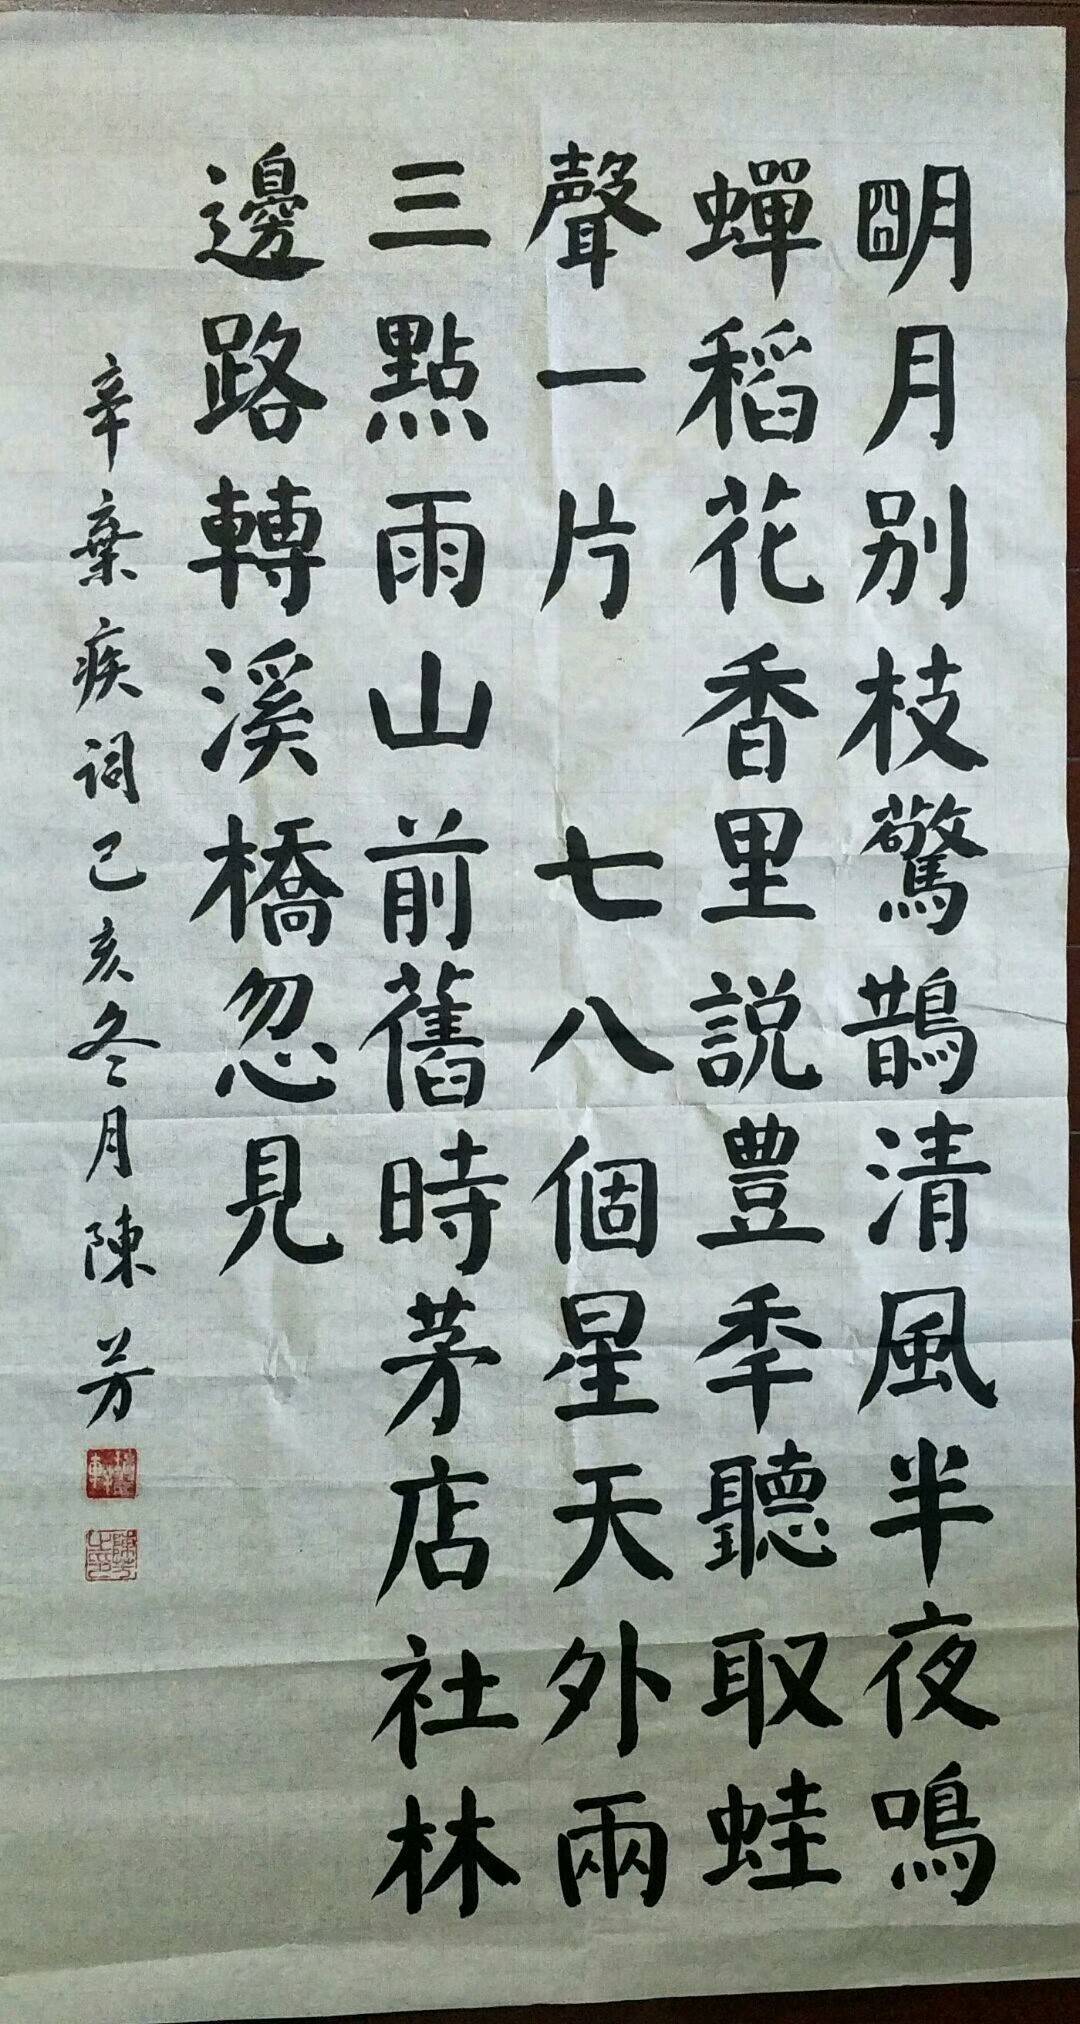 明月别枝驚鵲清風半夜鳴
蟬稻花香里説豊年聽取蛙
聲一片 七八個星天外兩
三點雨山前舊時茅店社林
邊路轉溪橋忽見
辛棄疾詞己亥冬月陳芳
陳芳之印